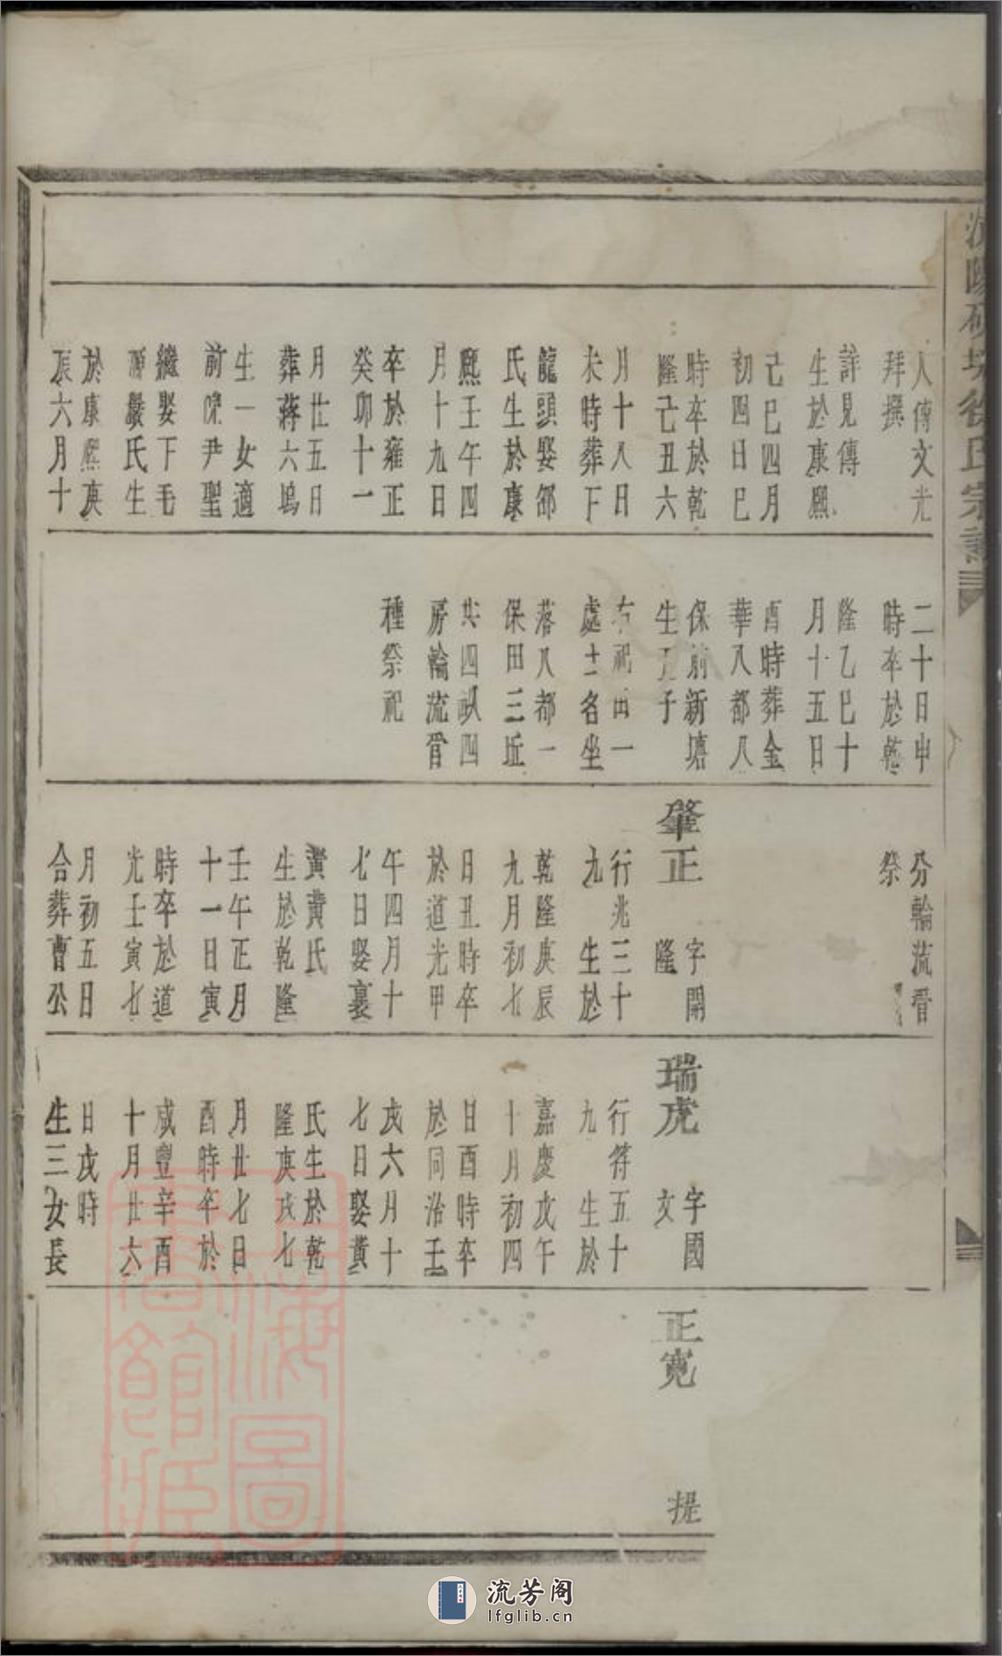 徐氏宗譜
人傳文光
拜撰
詳見傳
生於康熙
己巳四月
初四日巳
時卒於乾
隆己丑六
月十八日
未時葬下
龍頭娶邵
氏生於康
熙壬午四
月十九日
卒於雍正
癸卯十一
月廿五日
葬蔣六塢
生一女適
前晚尹聖
繼娶下毛
源嚴氏生
於康熙庚
辰六月十
二十日申
時卒於乾
隆乙巳十
月十五日
酉時葬金
華八都八
保前新塘
生子
祀田一
處土名坐
落八都一
保田三坵
共四畝四
房輪流晉
種祭祀
分輪流晉
祭
肇正
字開
隆
行兆三十
九 生於
乾隆庚辰
九月初七
日丑時卒
於道光甲
午四月十
七日娶裏
黃黃氏
生於乾隆
壬午正月
十一日寅
時卒於道
光壬寅七
月初五日
合葬曹公
瑞虎
字國
文
行符五十
九 生於
嘉慶戊午
十月初四
日酉時卒
於同治壬
戌六月十
七日娶黃
氏生於乾
隆庚戌七
月廿七日
酉時卒於
咸豐辛酉
十月廿六
日戊時
生三女長
正寬
提
上海圖書館藏
流芳阁
lfglib.cn